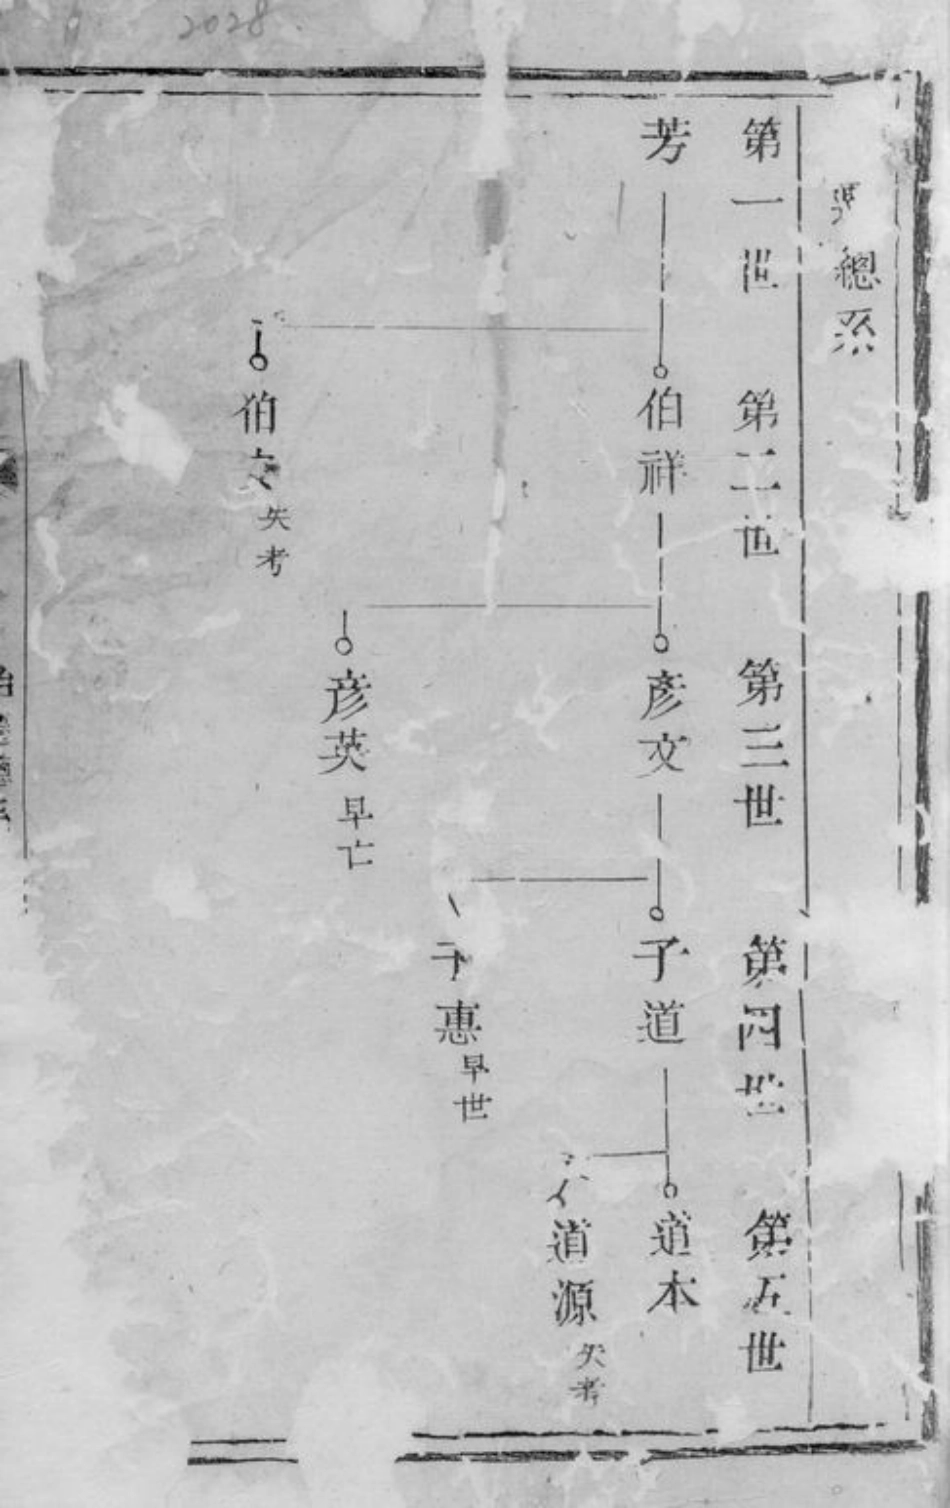 2028
總系
第一世 第二世 第三世 第四世 第五世
芳 伯祥 彥文 子道 道本
道源 失考
子惠 早世
彥英 早亡
伯文 失考